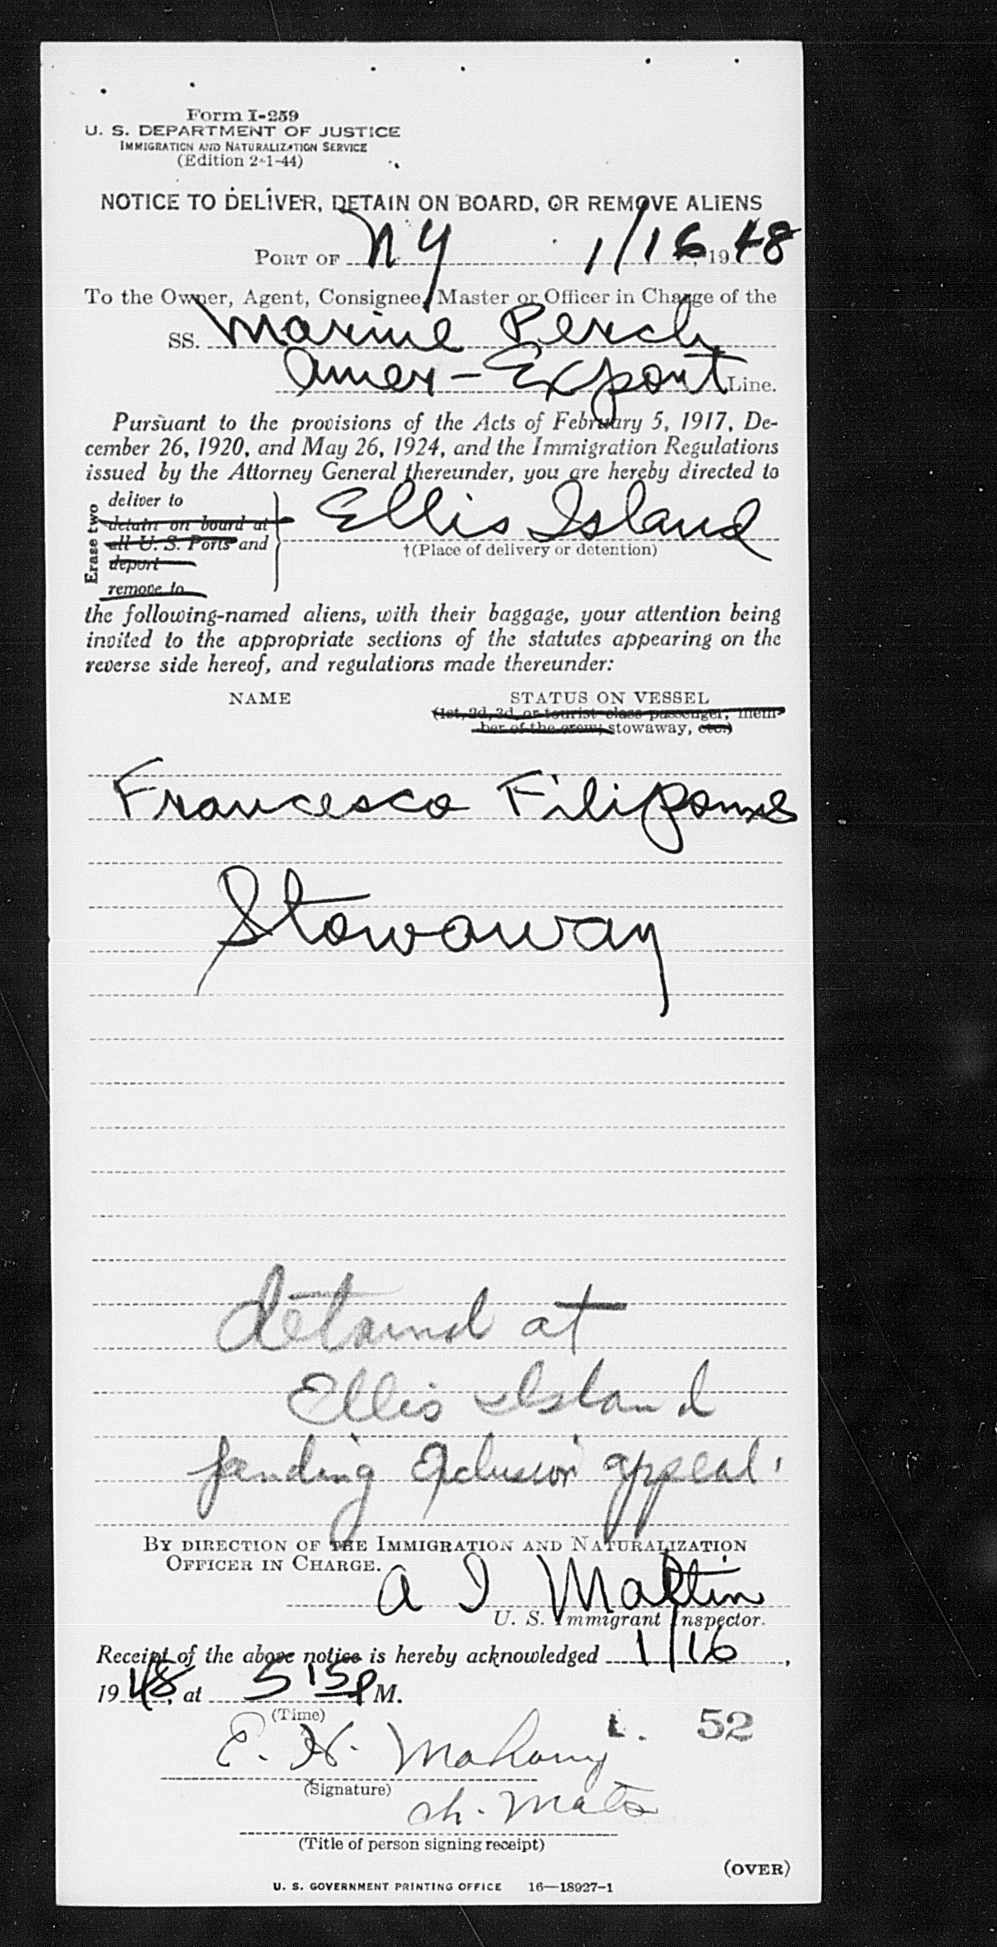 Form I-259
U. S. DEPARTMENT OF JUSTICE
IMMIGRATION AND NATURALIZATION SERVICE
(Edition 2-1-44)
NOTICE TO DELIVER, DETAIN ON BOARD, OR REMOVE ALIENS
PORT OF NY 1/16, 1948
To the Owner, Agent, Consignee, Master or Officer in Charge of the
SS. Marine Perch
Amer-Export Line.
Pursuant to the provisions of the Acts of February 5, 1917, De-
cember 26, 1920, and May 26, 1924, and the Immigration Regulations
issued by the Attorney General thereunder, you are hereby directed to
Erase two
deliver to
detain on board at
all U. S. Ports and
deport
remove to
Ellis Island
†(Place of delivery or detention)
the following-named aliens, with their baggage, your attention being
invited to the appropriate sections of the statutes appearing on the
reverse side hereof, and regulations made thereunder:
NAME STATUS ON VESSEL
(1st, 2d, 3d, or tourist class passenger, mem-
ber of the crew, stowaway, etc.)
Francesco Filipone
Stowaway
detained at
Ellis Island
pending exclusion appeal.
BY DIRECTION OF THE IMMIGRATION AND NATURALIZATION
OFFICER IN CHARGE.
A I Martin
U. S. Immigrant Inspector.
Receipt of the above notice is hereby acknowledged 1/16,
1948, at 5 15 P M.
(Time)
L. 52
E. H. Mahony
(Signature)
Ch. Mate
(Title of person signing receipt)
(OVER)
U. S. GOVERNMENT PRINTING OFFICE 16—18927-1